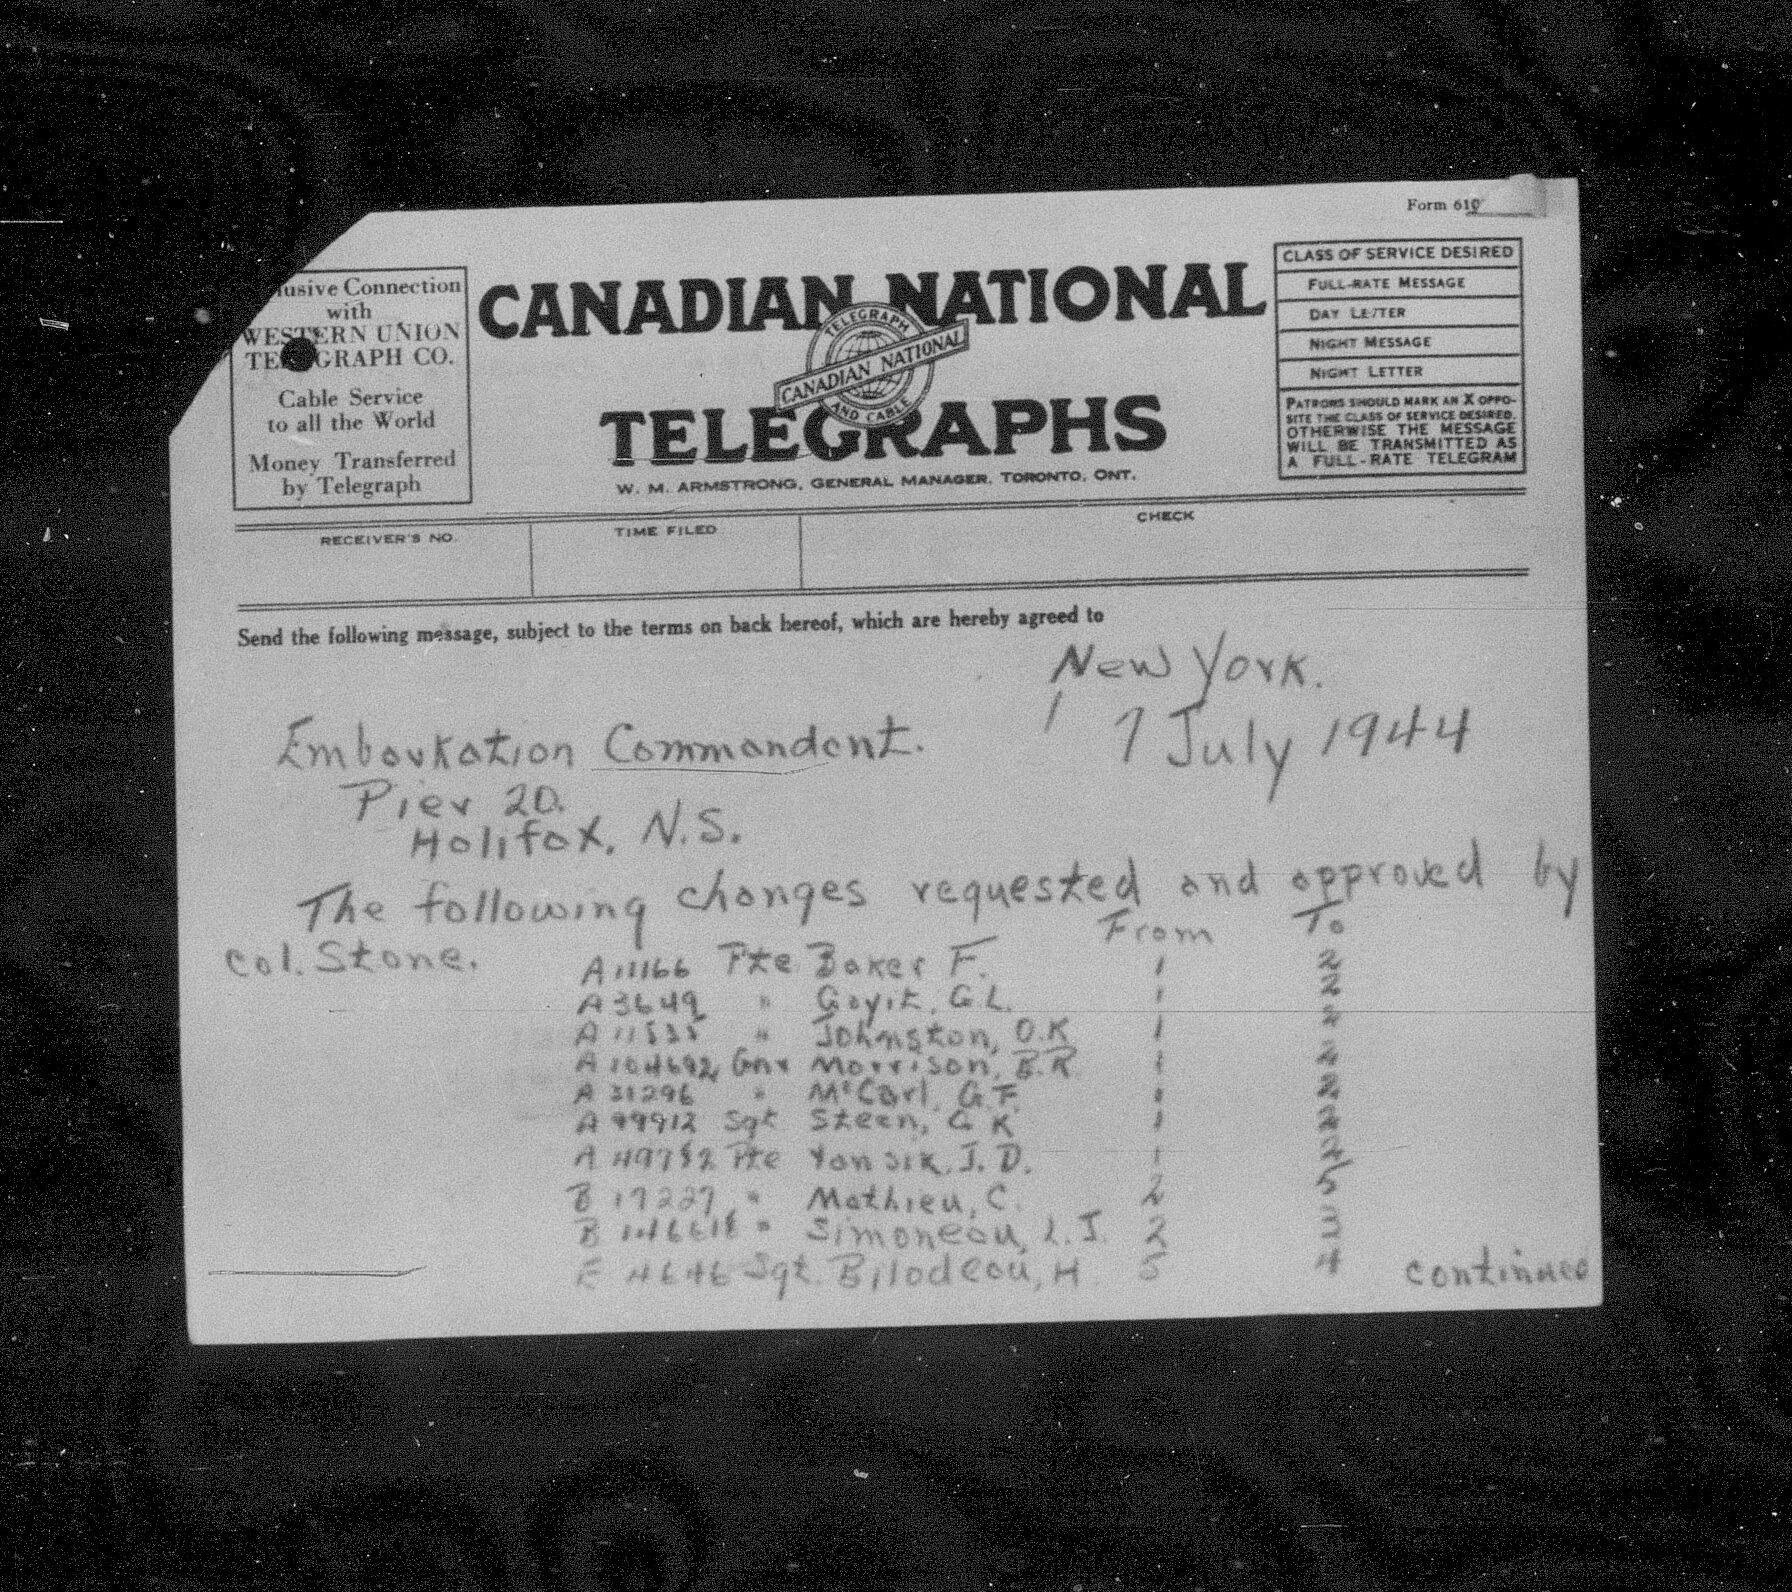 Form 610
lusive Connection
with
WESTERN UNION
TELEGRAPH CO.
Cable Service
to all the World
Money Transferred
by Telegraph
CANADIAN NATIONAL
TELEGRAPH
CANADIAN NATIONAL
AND CABLE
TELEGRAPHS
W. M. ARMSTRONG, GENERAL MANAGER, TORONTO, ONT.
CLASS OF SERVICE DESIRED
FULL-RATE MESSAGE
DAY LETTER
NIGHT MESSAGE
NIGHT LETTER
PATRONS SHOULD MARK AN X OPPO-
SITE THE CLASS OF SERVICE DESIRED.
OTHERWISE THE MESSAGE
WILL BE TRANSMITTED AS
A FULL-RATE TELEGRAM
RECEIVER'S NO. TIME FILED CHECK
Send the following message, subject to the terms on back hereof, which are hereby agreed to
New York.
7 July 1944
Embarkation Commandant.
Pier 20.
Halifax, N.S.
The following changes requested and approved by
Col. Stone. From To
A11166 Pte Baker F. 1 2
A3649 " G.L. 1 2
" Johnston, O.K 1
Gnr Morrison, B.R. 1 2
A 31296 " McCarl, G.F. 1 2
A 99912 Sgt Steen, G K 1 2
Pte J.D. 1
B 17227 " Mathieu, C. 2
" Simoneau, L.J. 2 3
E 4646 Sgt. Bilodeau, H 5 4
continued